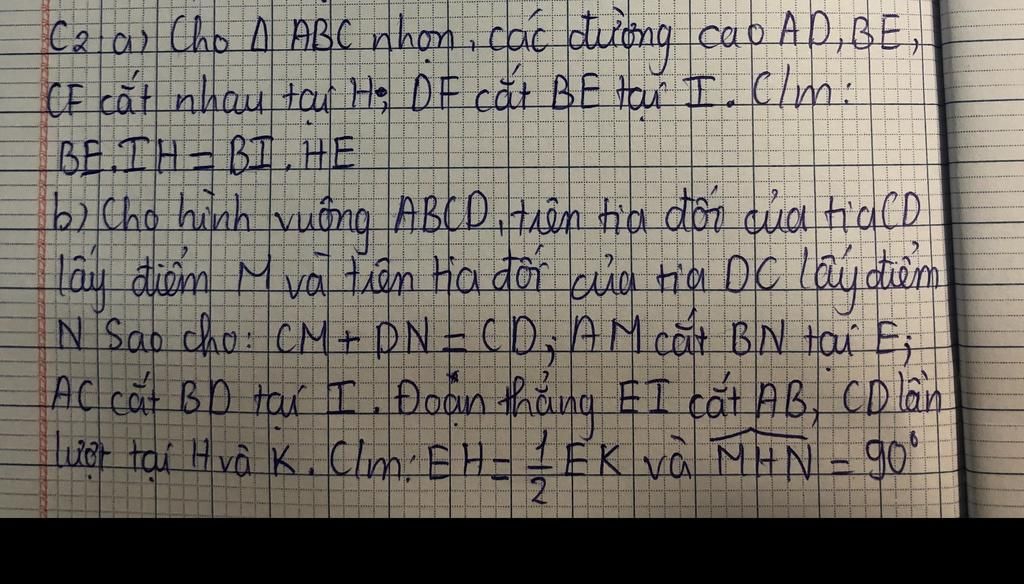 C2 a) Cho Δ ABC nhọn, các đường cao AD, BE,
CF cắt nhau tại H; DF cắt BE tại I. C/m:
BE.IH = BI.HE
b) Cho hình vuông ABCD, trên tia đối của tia CD
lấy điểm M và trên tia đối của tia DC lấy điểm
N sao cho: CM + DN = CD; AM cắt BN tại E;
AC cắt BD tại I. Đoạn thẳng EI cắt AB, CD lần
lượt tại H và K. C/m: EH = \frac{1}{2} EK và \widehat{MHN} = 90°